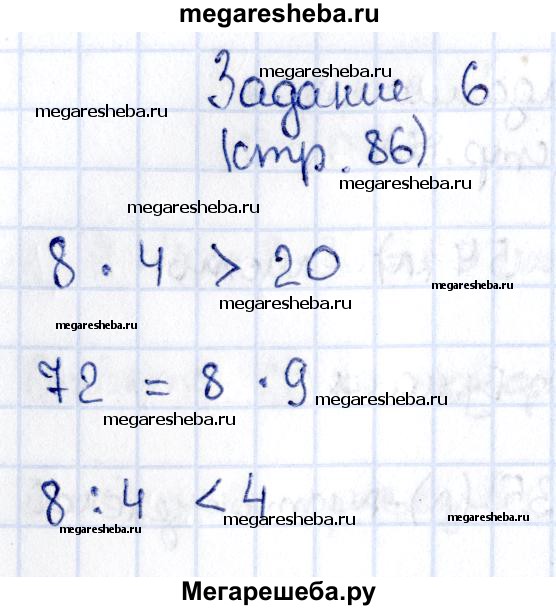 megaresheba.ru
Задание 6
megaresheba.ru
megaresheba.ru
(стр. 86)
megaresheba.ru
megaresheba.ru
8 · 4 > 20
megaresheba.ru
megaresheba.ru
megaresheba.ru
72 = 8 · 9
megaresheba.ru
megaresheba.ru
8 : 4 < 4
megaresheba.ru
megaresheba.ru
Мегарешеба.ру